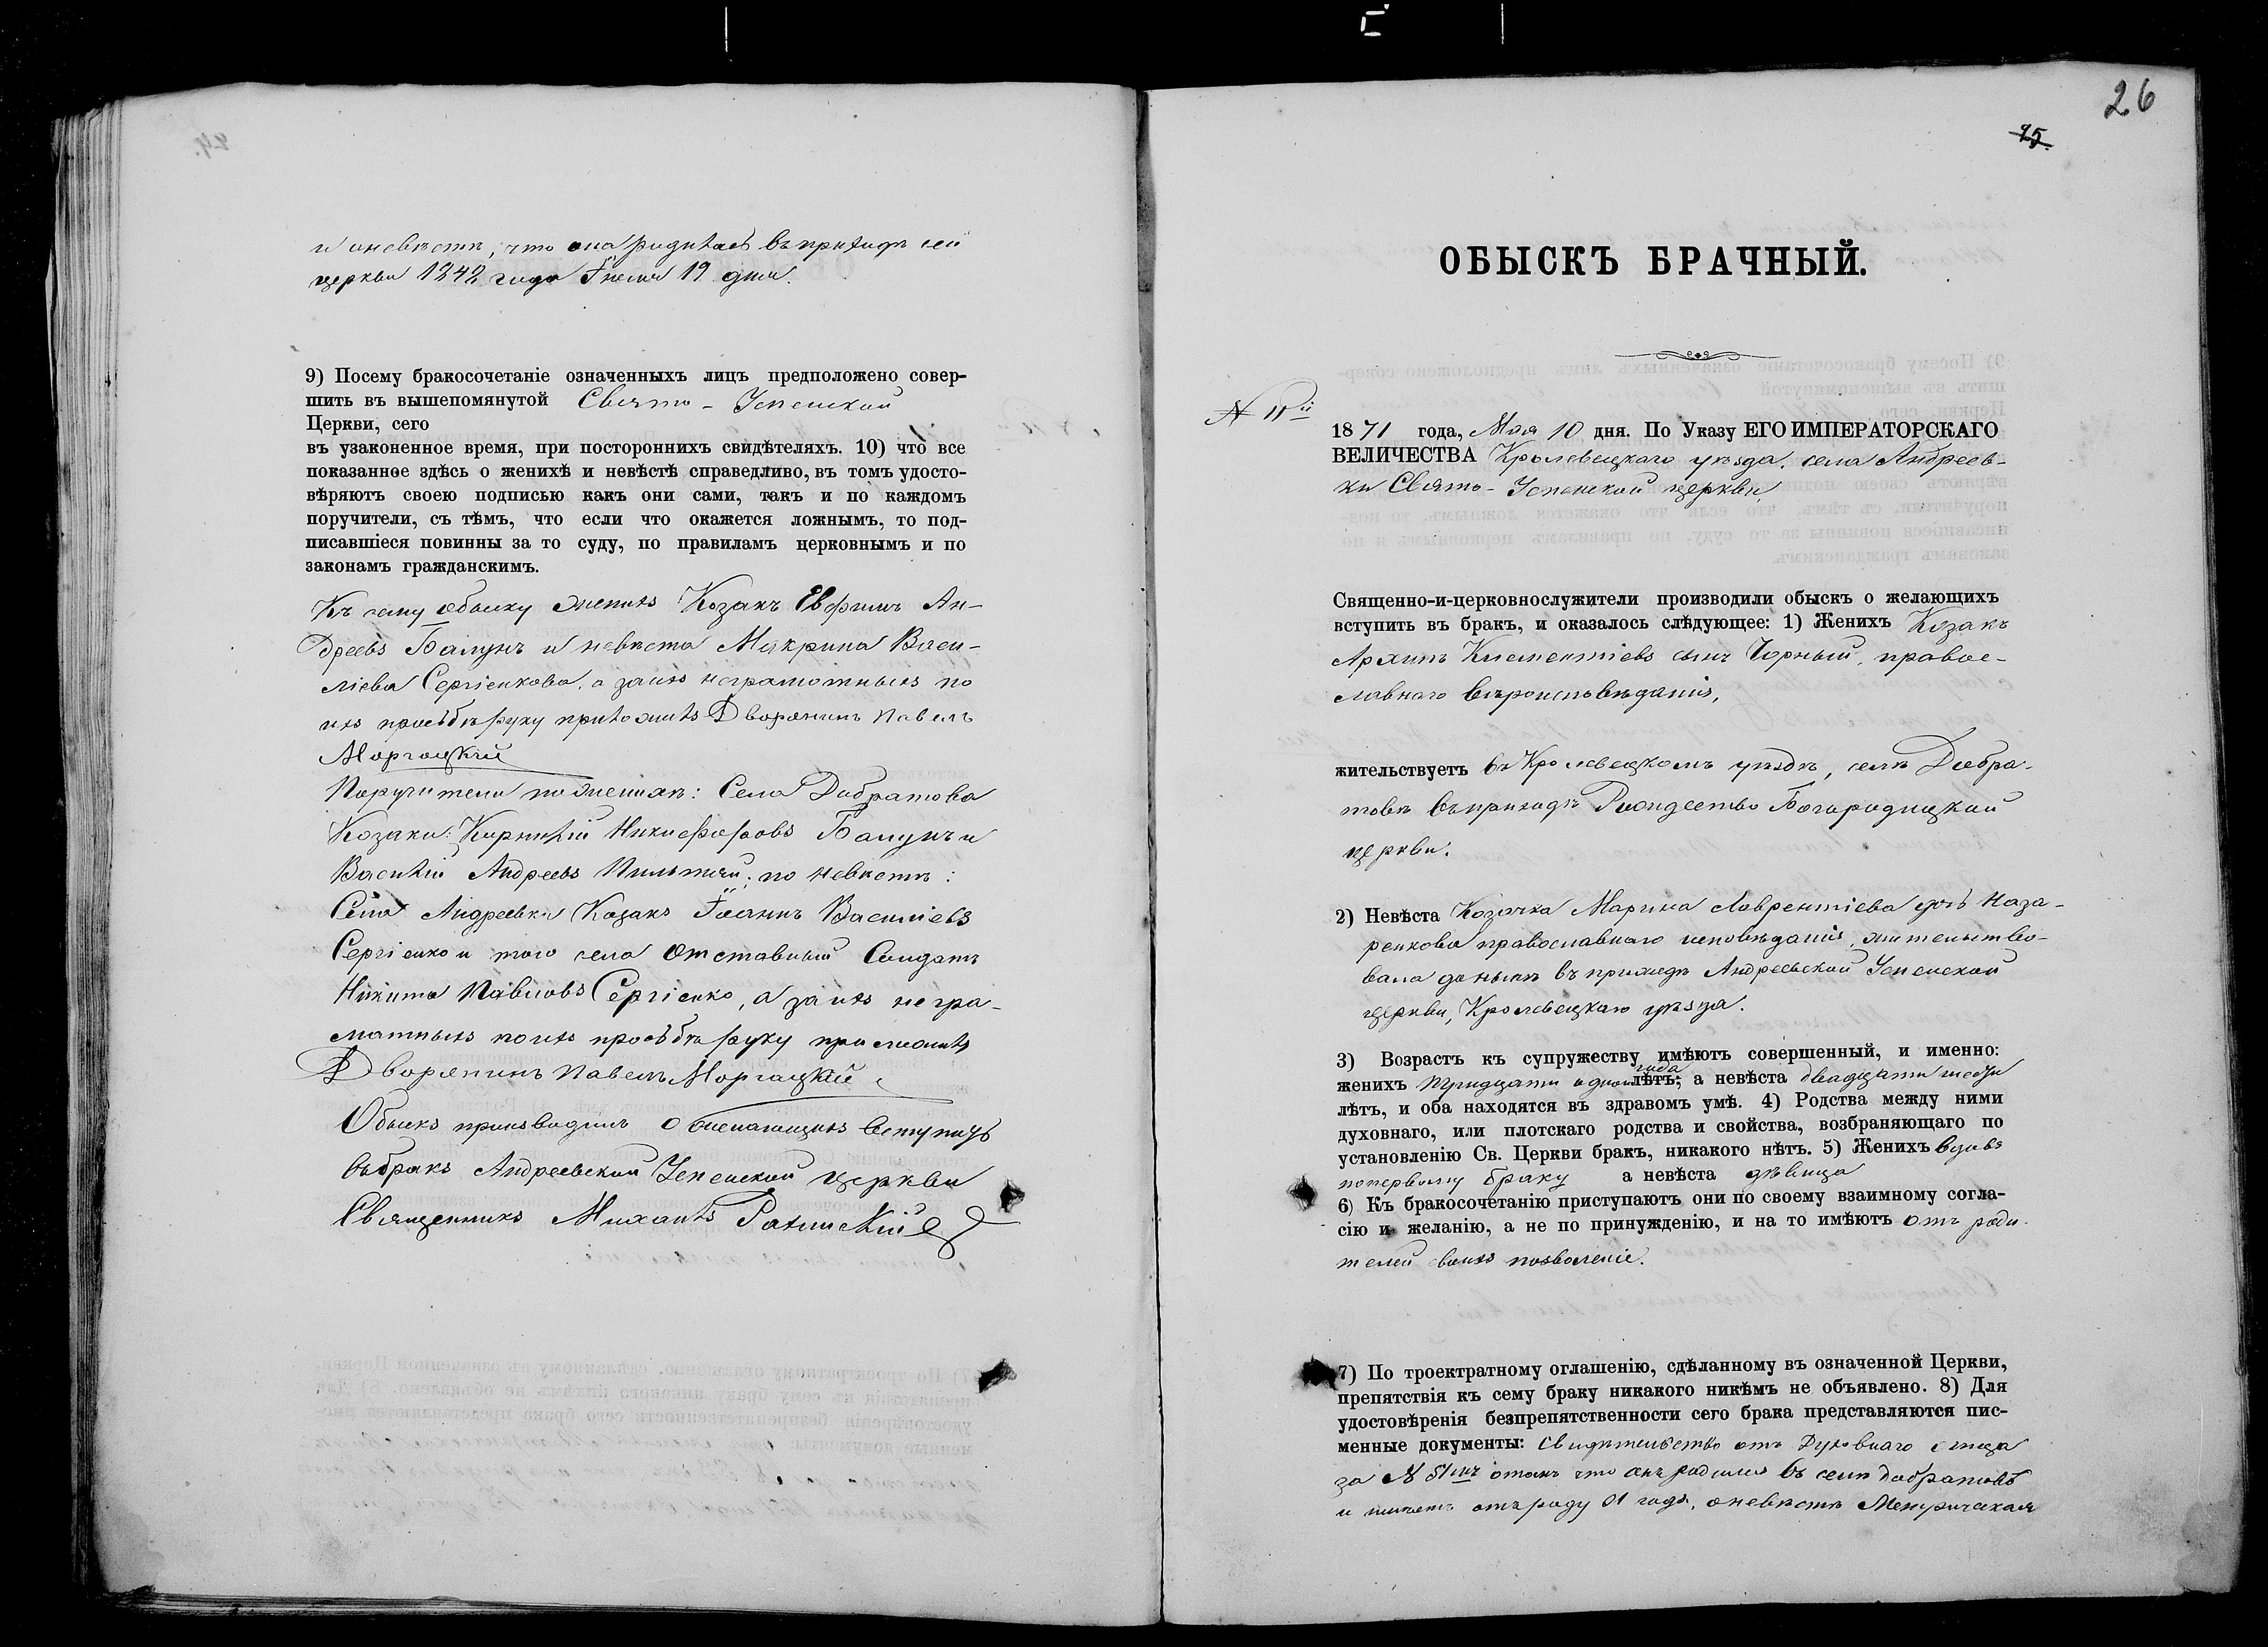 24.
и оневѣстѣ, что она родилась въ приходѣ сей
церкви 1842 года Іюля 19 дня.
9) Посему бракосочетаніе означенныхъ лицъ предположено совер-
шить въ вышепомянутой Свято-Успенской
Церкви, сего
въ узаконенное время, при постороннихъ свидѣтеляхъ. 10) что все
показанное здѣсь о женихѣ и невѣстѣ справедливо, въ томъ удосто-
вѣряютъ своею подписью какъ они сами, такъ и по каждомъ
поручители, съ тѣмъ, что если что окажется ложнымъ, то под-
писавшіеся повинны за то суду, по правиламъ церковнымъ и по
законамъ гражданскимъ.
Къ сему обыску женихъ Козакъ Евфимъ Ан-
дреевъ Балунъ и невѣста Макрина Васи-
ліева Сергіенкова, а заихъ неграмотныхъ по
ихъ просьбѣ руку приложилъ Дворянинъ Павелъ
Поручители по женихѣ: Села Добратова
Козаки: Кирилій Никифоровъ Балунъ и
Василій Андреевъ по невѣстѣ:
Села Андреевки Козакъ Іоаннъ Василіевъ
Сергіенко и того села Отставный Солдатъ
Никита Павловъ Сергіенко, а заихъ негра-
матныхъ поихъ просьбѣ руку приложилъ
Дворянинъ Павелъ
Обыскъ производилъ о желающихъ вступить
въ бракъ Андреевской Успенской церкви
Священникъ Михаилъ
26
25.
ОБЫСКЪ БРАЧНЫЙ.
№ 11й
1871 года, Мая 10 дня. По Указу ЕГО ИМПЕРАТОРСКАГО
ВЕЛИЧЕСТВА Кролевецкаго уѣзда, села Андреев-
ки Свято-Успенской церкви
Священно-и-церковнослужители производили обыскъ о желающихъ
вступить въ бракъ, и оказалось слѣдующее: 1) Женихъ Козакъ
Архипъ Климентіевъ сынъ Чорный, правос-
лавнаго вѣроисповѣданія,
жительствуетъ въ Кролевецкомъ уѣздѣ, селѣ Добра-
товѣ въ приходѣ Рождество Богородицкой
церкви.
2) Невѣста Козачка Марина Лаврентіева дочь Наза-
ренкова православнаго исповѣданія, жительство-
вала донынѣ въ приходѣ Андреевской Успенской
церкви, Кролевецкаго уѣзда.
3) Возрастъ къ супружеству имѣютъ совершенный, и именно:
женихъ тридцати одного года лѣтъ; а невѣста двадцати
лѣтъ, и оба находятся въ здравомъ умѣ. 4) Родства между ними
духовнаго, или плотскаго родства и свойства, возбраняющаго по
установленію Св. Церкви бракъ, никакого нѣтъ. 5) Женихъ вдовъ
попервому браку а невѣста дѣвица
6) Къ бракосочетанію приступаютъ они по своему взаимному согла-
сію и желанію, а не по принужденію, и на то имѣютъ отъ роди-
телей своихъ позволеніе.
7) По троектратному оглашенію, сдѣланному въ означенной Церкви,
препятствія къ сему браку никакого никѣмъ не объявлено. 8) Для
удостовѣренія безпрепятственности сего брака представляются пис-
менные документы: Свидѣтельство отъ Духовнаго отца
за № отомъ что онъ родился въ селѣ Добратовѣ
и имѣетъ отъ роду года, оневѣстѣ Метрическая